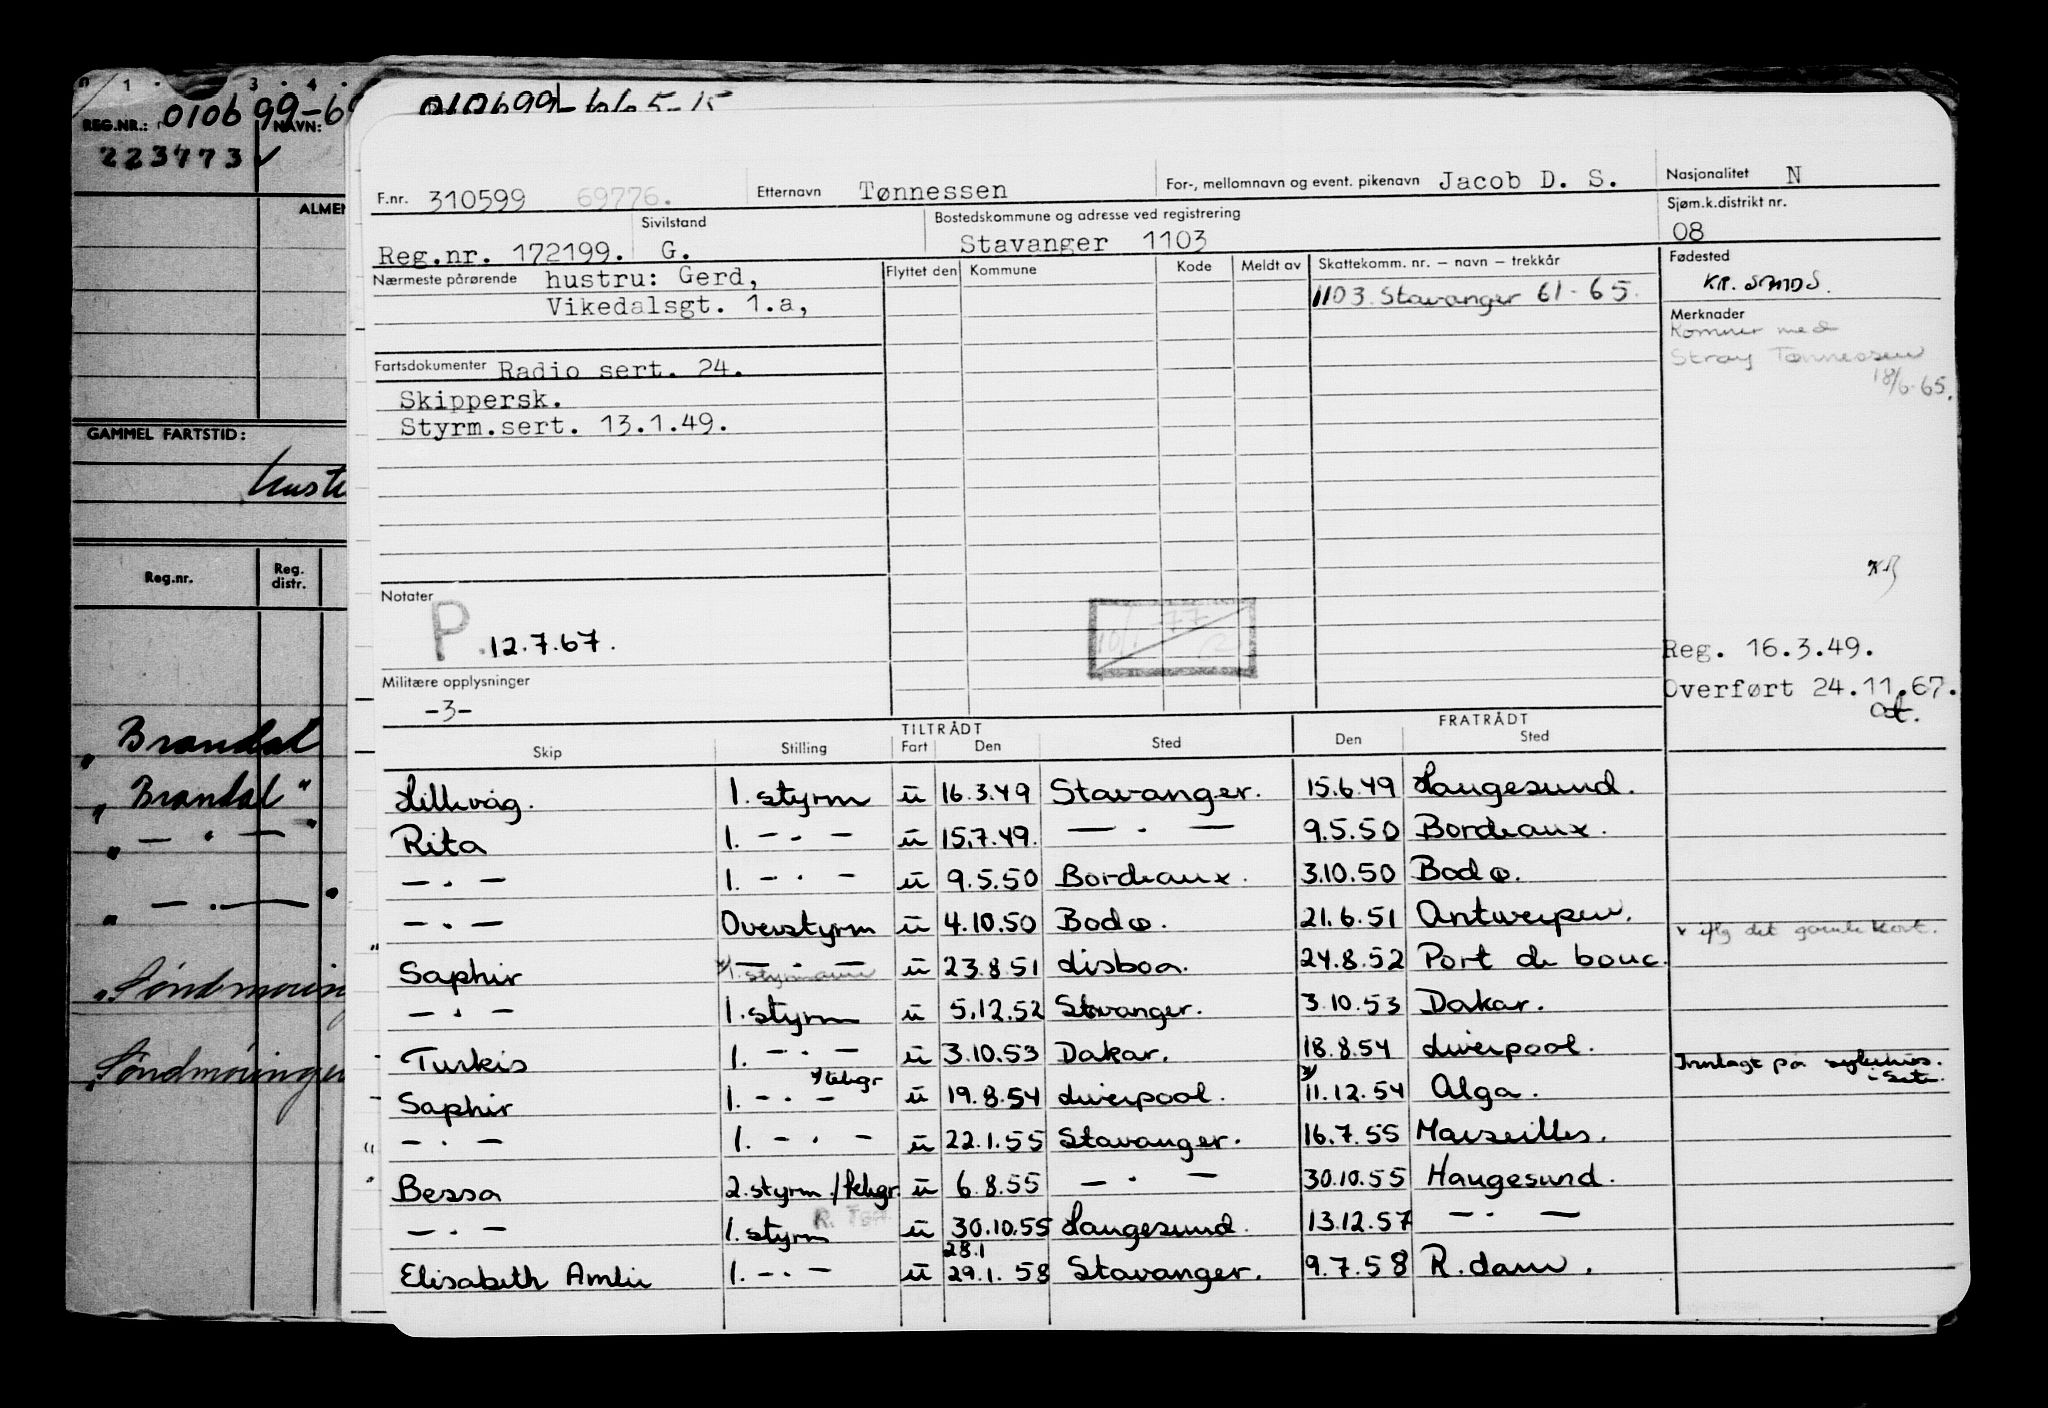 1 3 4
010699-6
REG.NR.: NAVN:
223773 ✓
ALMEN
GAMMEL FARTSTID:
Reg.nr. Reg. distr.
" Brandal
" Brandal "
" — . — "
" — . — "
" Søndmøring
" Søndmøringen
010699-665-15
F.nr. 310599 69776. Etternavn Tønnessen For-, mellomnavn og event. pikenavn Jacob D. S. Nasjonalitet N
Sivilstand Bostedskommune og adresse ved registrering Sjøm.k.distrikt nr.
Reg.nr. 172199. G. Stavanger 1103 08
Nærmeste pårørende hustru: Gerd, Flyttet den Kommune Kode Meldt av Skattekomm. nr. – navn – trekkår Fødested
Vikedalsgt. 1.a, 1103. Stavanger 61-65. KR. SANDS.
Merknader
Kommer med
Stray Tønnessen
18/6-65.
Fartsdokumenter Radio sert. 24.
Skippersk.
Styrm.sert. 13.1.49.
Notater
P .12.7.67.
Reg. 16.3.49.
Overført 24.11.67.
Militære opplysninger
-3-
TILTRÅDT FRATRÅDT
Skip Stilling Fart Den Sted Den Sted
Hillevåg. 1. styrm u 16.3.49 Stavanger. 15.6.49 Haugesund.
Rita 1. — . — u 15.7.49. — . — 9.5.50 Bordeaux.
— . — 1. — . — u 9.5.50 Bordeaux. 3.10.50 Bodø.
— . — Overstyrm u 4.10.50 Bodø. 21.6.51 Antwerpen.
v iflg det gamle kort.
Saphir — . — x/1. styrmann u 23.8.51 Lisboa. 24.8.52 Port de bouc.
— . — 1. styrm u 5.12.52 Stavanger. 3.10.53 Dakar.
Turkis 1. — . — u 3.10.53 Dakar. 18.8.54 Liverpool.
Saphir 1. — . — /telegr u 19.8.54 Liverpool. 11.12.54 Alga. Innlagt på sykehus.
— . — 1. — . — u 22.1.55 Stavanger. 16.7.55 Marseilles.
Bessa 2. styrm / telegr. u 6.8.55 — . — 30.10.55 Haugesund.
— . — 1. styrm u 30.10.55 Haugesund. 13.12.57 — . —
28.1
Elisabeth Amlie 1. — . — u 29.1.58 Stavanger. 9.7.58 R.dam.